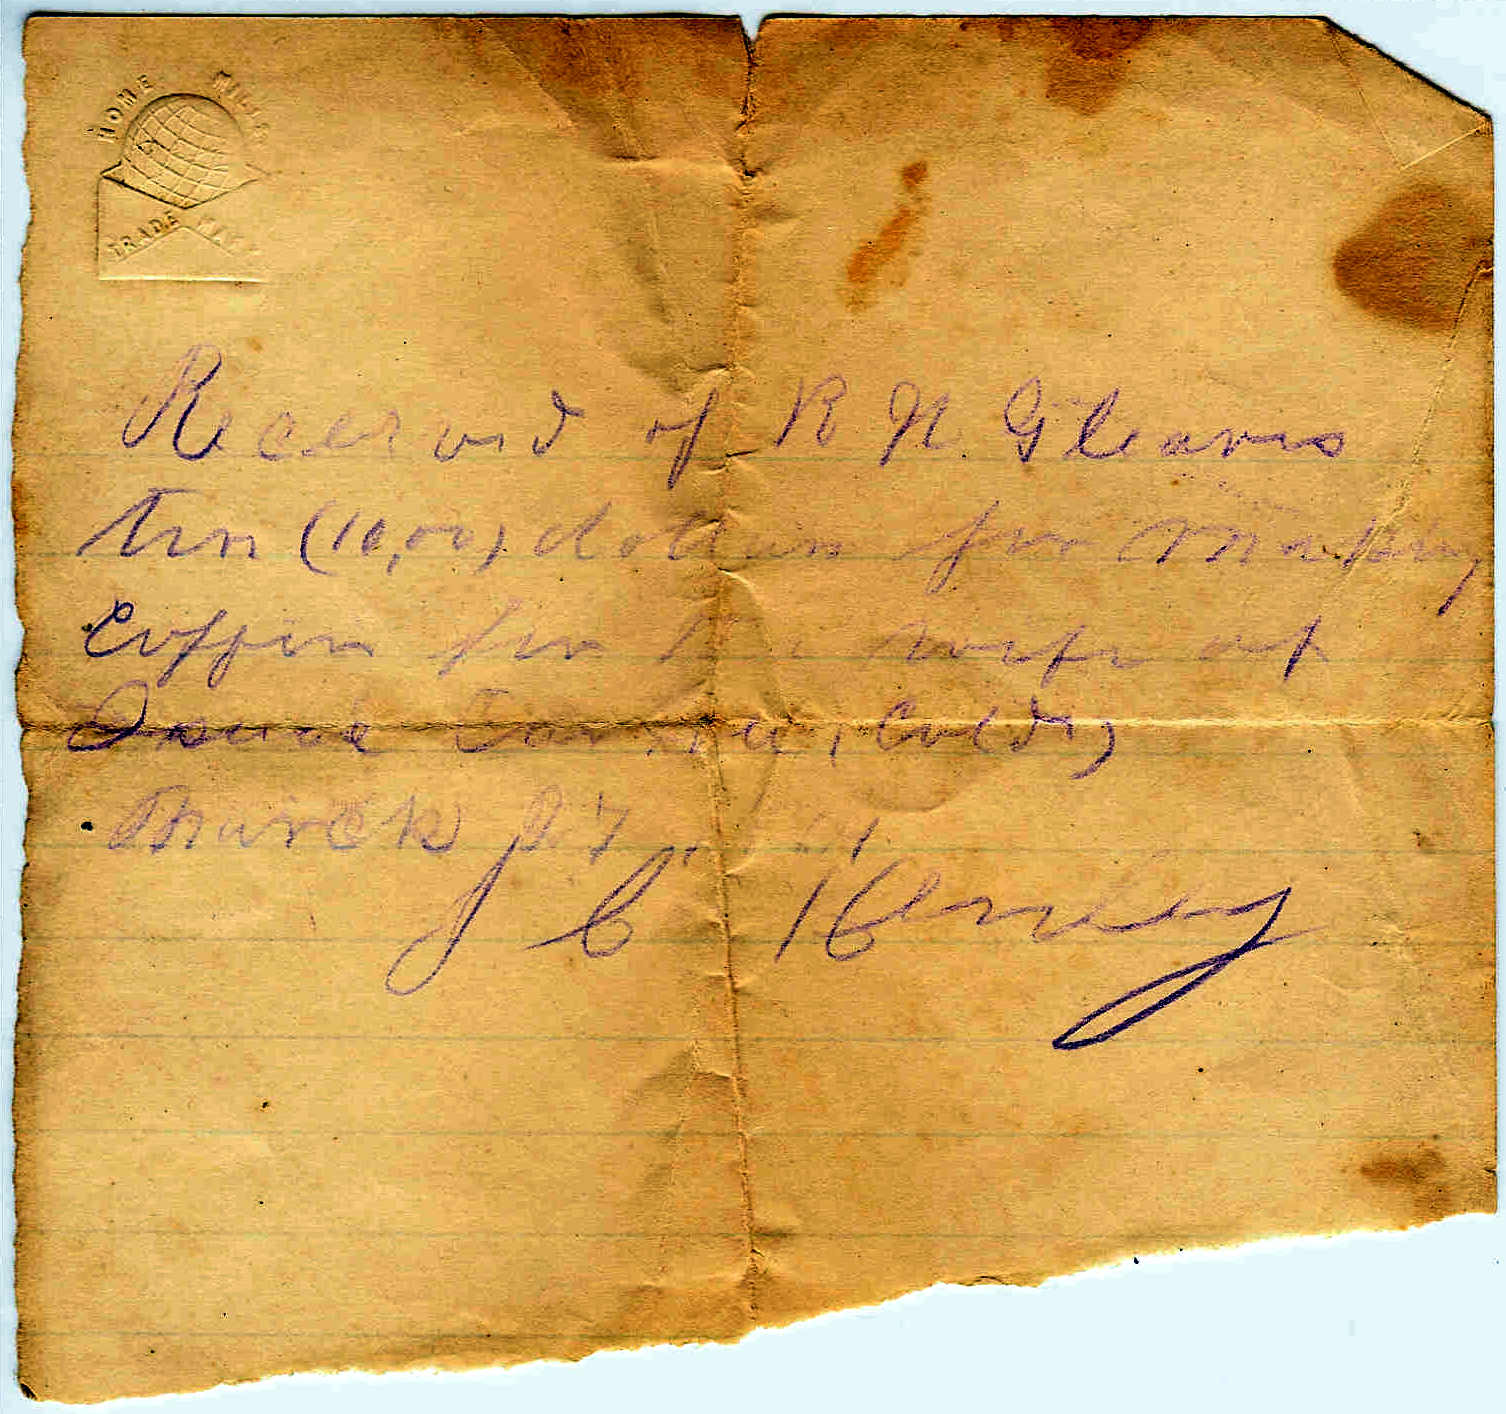 HOME MILLS
TRADE MARK
Received of R N. Gleaves
Ten (10,00) dollars for making
Coffin for the wife of
(Cold)
March 27
J C Hensley